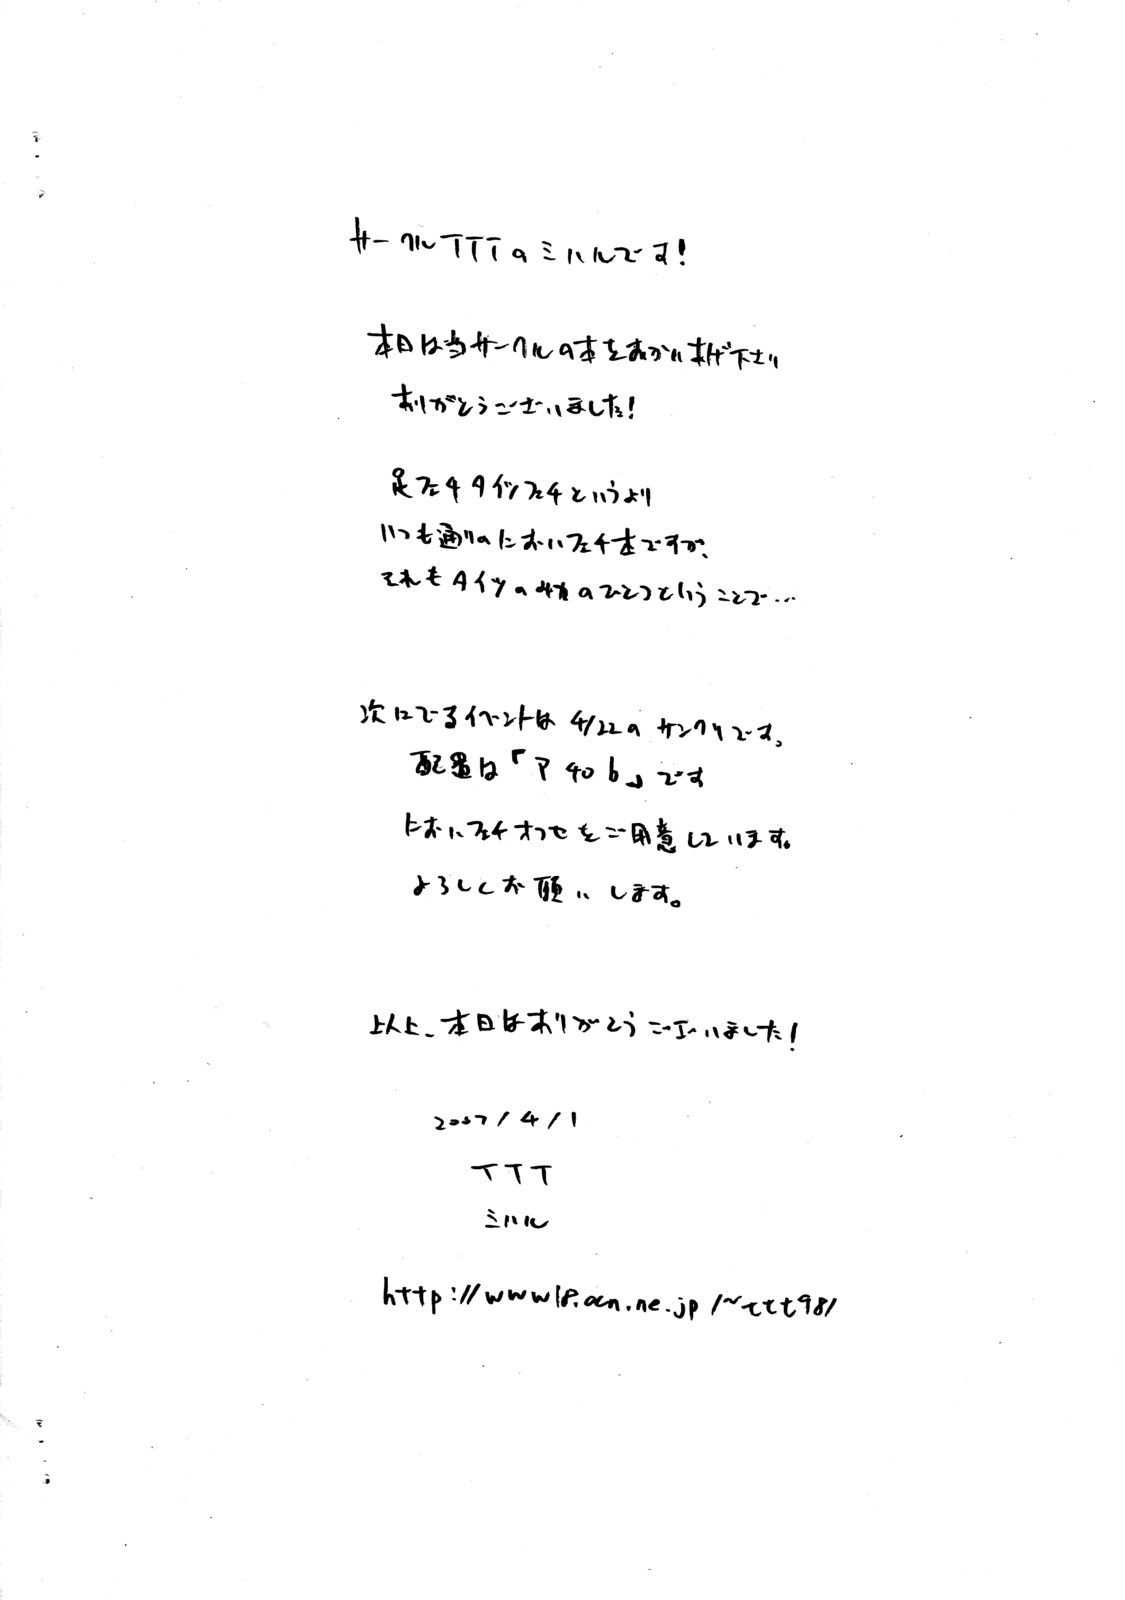 サークルTTTのミハルです!
本日は当サークルの本をお買い上げ下さり
ありがとうございました!
足フェチタイツフェチというより
いつも通りのにおいフェチ本ですが、
それもタイツの魅力のひとつということで…
次にでるイベントは4/22のサンクリです。
配置は「ア40b」です
においフェチオフセをご用意しています。
よろしくお願いします。
以上、本日はありがとうございました!
2007/4/1
TTT
ミハル
http://www18.ocn.ne.jp/~ttt98/